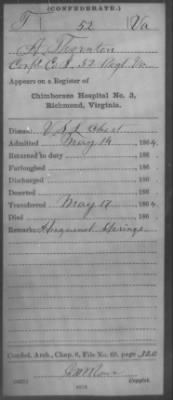 (CONFEDERATE.)
T 52 Va
A Thornton
Corpl Co. I. 52 Regt. Va.
Appears on a Register of
Chimborazo Hospital No. 3,
Richmond, Virginia.
Disease V. S. L. Chest
Admitted May 14, 1864
Returned to duty , 186 .
Furloughed , 186 .
Discharged , 186 .
Deserted , 186 .
Transferred May 17, 1864
Died , 186 .
Remarks: Huguenot Springs
Confed. Arch., Chap. 6, File No. 60, page
Copyist.